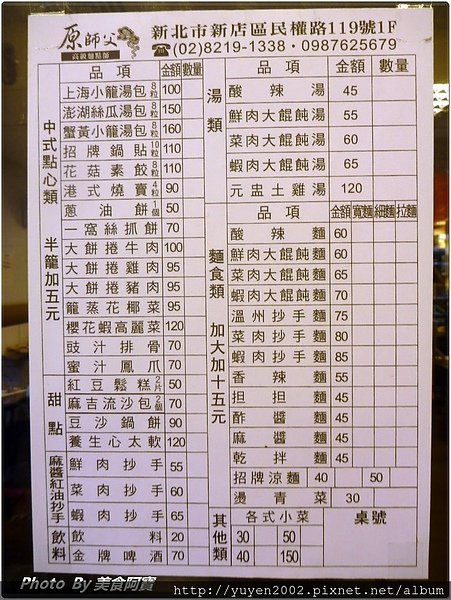 原師父
高級麵點師
新北市新店區民權路119號1F
☎(02)8219-1338・0987625679
中式點心類 半籠加五元
品項 金額 數量
上海小籠湯包8粒 100
澎湖絲瓜湯包8粒 150
蟹黃小籠湯包8粒 160
招牌鍋貼10粒 110
花菇素餃8粒 110
港式燒賣4粒 90
蔥油餅1個 50
一窩絲抓餅 70
大餅捲牛肉 100
大餅捲雞肉 95
大餅捲豬肉 95
籠蒸花椰菜 95
櫻花蝦高麗菜 120
豉汁排骨 70
蜜汁鳳爪 70
甜點
紅豆鬆糕2片 50
麻吉流沙包2個 70
豆沙鍋餅 90
養生心太軟 120
麻醬紅油抄手
鮮肉抄手 55
菜肉抄手 60
蝦肉抄手 65
飲料
飲料 20
金牌啤酒 70
湯類
品項 金額 數量
酸辣湯 45
鮮肉大餛飩湯 55
菜肉大餛飩湯 60
蝦肉大餛飩湯 65
元盅土雞湯 120
麵食類 加大加十五元
品項 金額 寬麵 細麵 拉麵
酸辣麵 60
鮮肉大餛飩麵 60
菜肉大餛飩麵 65
蝦肉大餛飩麵 70
溫州抄手麵 75
菜肉抄手麵 80
蝦肉抄手麵 85
香辣麵 55
担担麵 45
酢醬麵 45
麻醬麵 45
乾拌麵 45
招牌涼麵 40 50
燙青菜 30
其他類
各式小菜 桌號
30 50
40 150
Photo By 美食阿寶
http://yuyen2002.pixnet.net/album